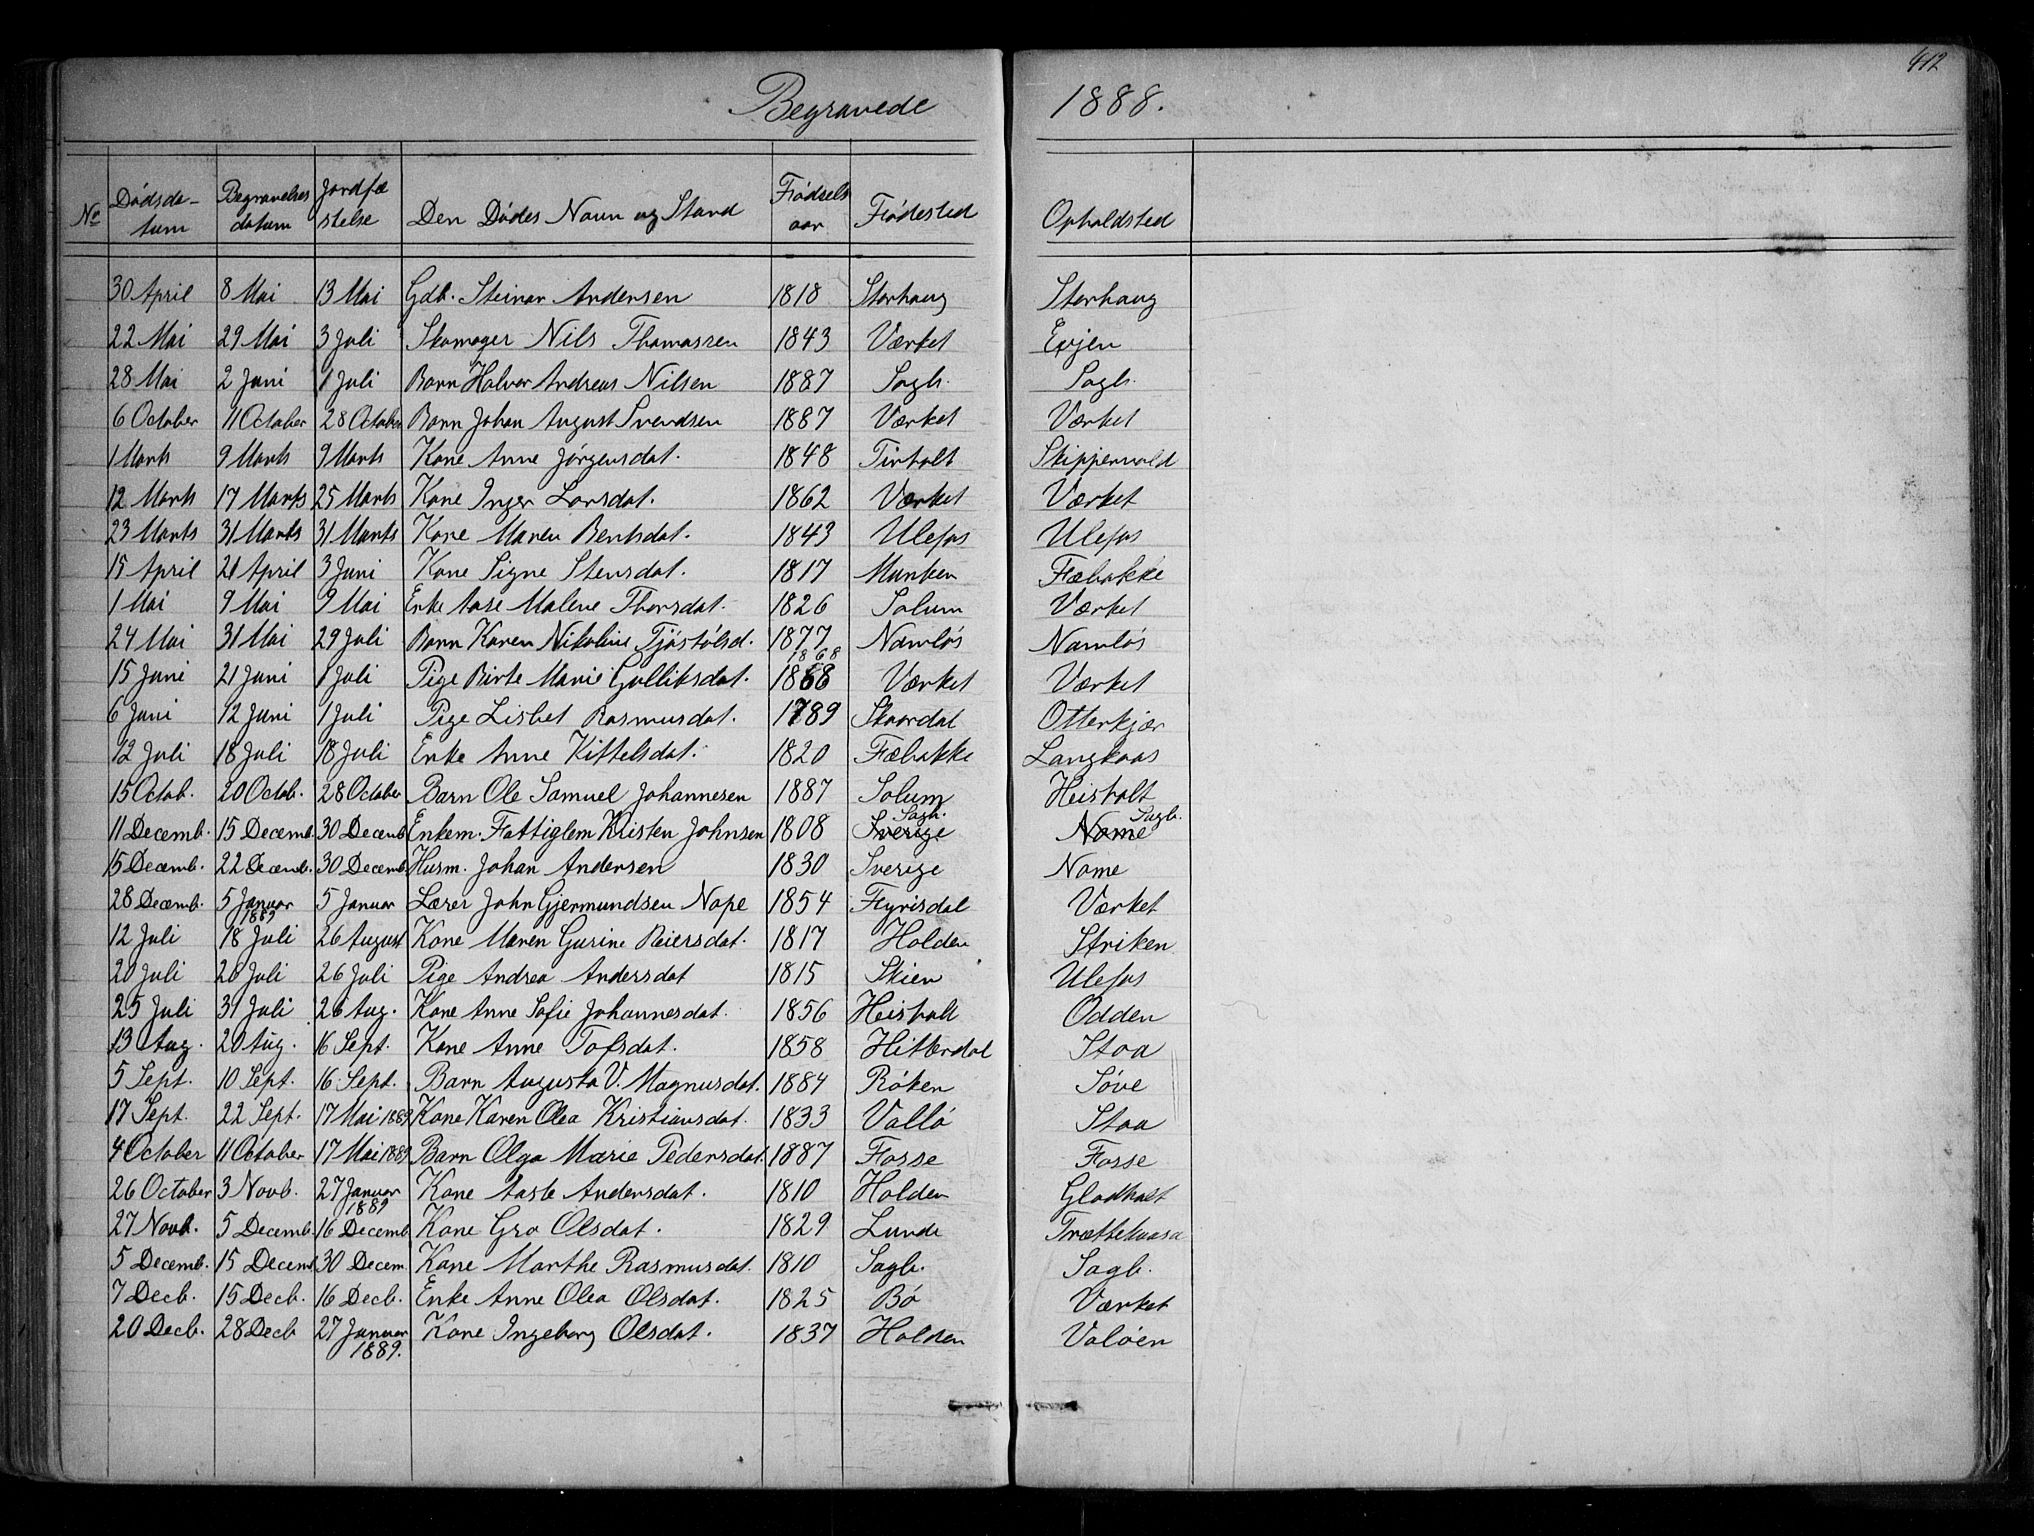 412
Begravede 1888.
No Dødsda- Begravelses Jordfæ Den Dødes Navn og Stand Fødsels Fødested Opholdsted
tum datum stelse aar
30 April 8 Mai 13 Mai Gdb. Steinar Andersen 1818 Storhaug Storhaug
22 Mai 29 Mai 3 Juli Skomager Nils Thomassen 1843 Værket Evjen
28 Mai 2 Juni 1 Juli Barn Halvor Andreas Nilsen 1887 Sagb. Sagb.
6 October 11 October 28 October Barn Johan August Svendsen 1887 Værket Værket
1 Marts 9 Marts 9 Marts Kone Anne Jørgensdat. 1848 Tirholt Skippervold
12 Marts 17 Marts 25 Marts Kone Inger Larsdat. 1862 Værket Værket
23 Marts 31 Marts 31 Marts Kone Maren Bentsdat. 1843 Ulefos Ulefos
15 April 21 April 3 Juni Kone Signe Stensdat. 1817 Munken Fæbakke
1 Mai 9 Mai 9 Mai Enke Aase Malene Thorsdat. 1826 Solum Værket
24 Mai 31 Mai 29 Juli Barn Karen Nikoline Tjøstølsd. 1877 Namløs Namløs
1868
15 Juni 21 Juni 1 Juli Pige Birte Marie Gulliksdat. 1868 Værket Værket
6 Juni 12 Juni 1 Juli Pige Lisbet Rasmusdat. 1789 Skaardal Otterkjær
12 Juli 18 Juli 18 Juli Enke Anne Kittelsdat. 1820 Fæbakke Langkaas
15 Octob. 20 Octob. 28 October Barn Ole Samuel Johannesen 1887 Solum Heisholt
Sagb. Sagb.
11 Decemb. 15 Decemb. 30 Decemb. Enkem. Fattiglem Kristen Johnsen 1808 Sverige Nome
15 Decemb. 22 Decemb. 30 Decemb. Husm. Johan Andersen 1830 Sverige Nome
28 Decemb. 5 Januar 5 Januar Lærer John Gjermundsen Nape 1854 Fyrisdal Værket
1889
12 Juli 18 Juli 26 August Kone Maren Gurine Reiersdat. 1817 Holden Striken
20 Juli 26 Juli 26 Juli Pige Andrea Andersdat 1815 Skien Ulefos
25 Juli 31 Juli 26 Aug. Kone Anne Sofie Johannesdat. 1856 Heisholt Odden
13 Aug. 20 Aug. 16 Sept. Kone Anne Tofsdat. 1858 Hitterdal Stoa
5 Sept. 10 Sept. 16 Sept. Barn Augusta V. Magnusdat. 1884 Røken Søve
17 Sept. 22 Sept. 17 Mai 1889 Kone Karen Olea Kristiansdat. 1833 Vallø Stoa
4 October 11 October 17 Mai 1889 Barn Olga Marie Pedersdat. 1887 Fosse Fosse
26 October 3 Novb. 27 Januar Kone Aaste Andersdat. 1810 Holden Gladholt
1889
27 Novb. 5 Decemb. 16 Decemb Kone Gro Olsdat. 1829 Lunde Trættekaasa
5 Decemb. 15 Decemb 30 Decem. Kone Marthe Rasmusdat. 1810 Sagb. Sagb.
7 Decb. 15 Decb. 16 Decb. Enke Anne Olea Olsdat. 1825 Bø Værket
20 Decb. 28 Decb 27 Januar Kone Ingeborg Olsdat. 1837 Holden Valøen
1889.